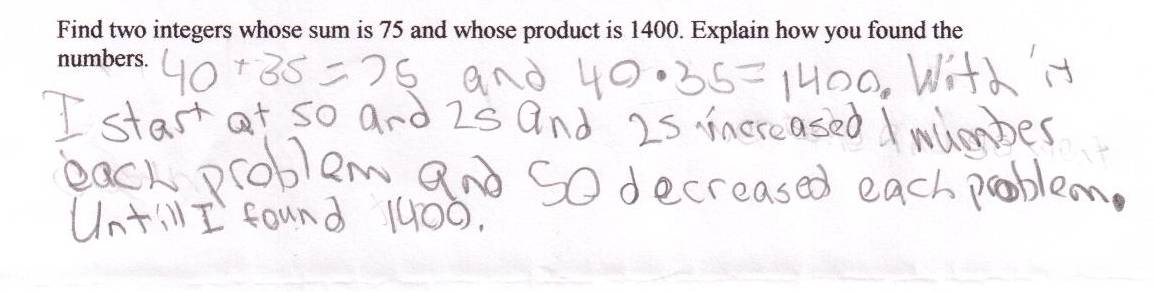 Find two integers whose sum is 75 and whose product is 1400. Explain how you found the
numbers. 40 + 35 = 75 and 40 • 35 = 1400. With it
I start at 50 and 25 and 25 increased 1 number
each problem and 50 decreased each problem.
Untill I found 1400.